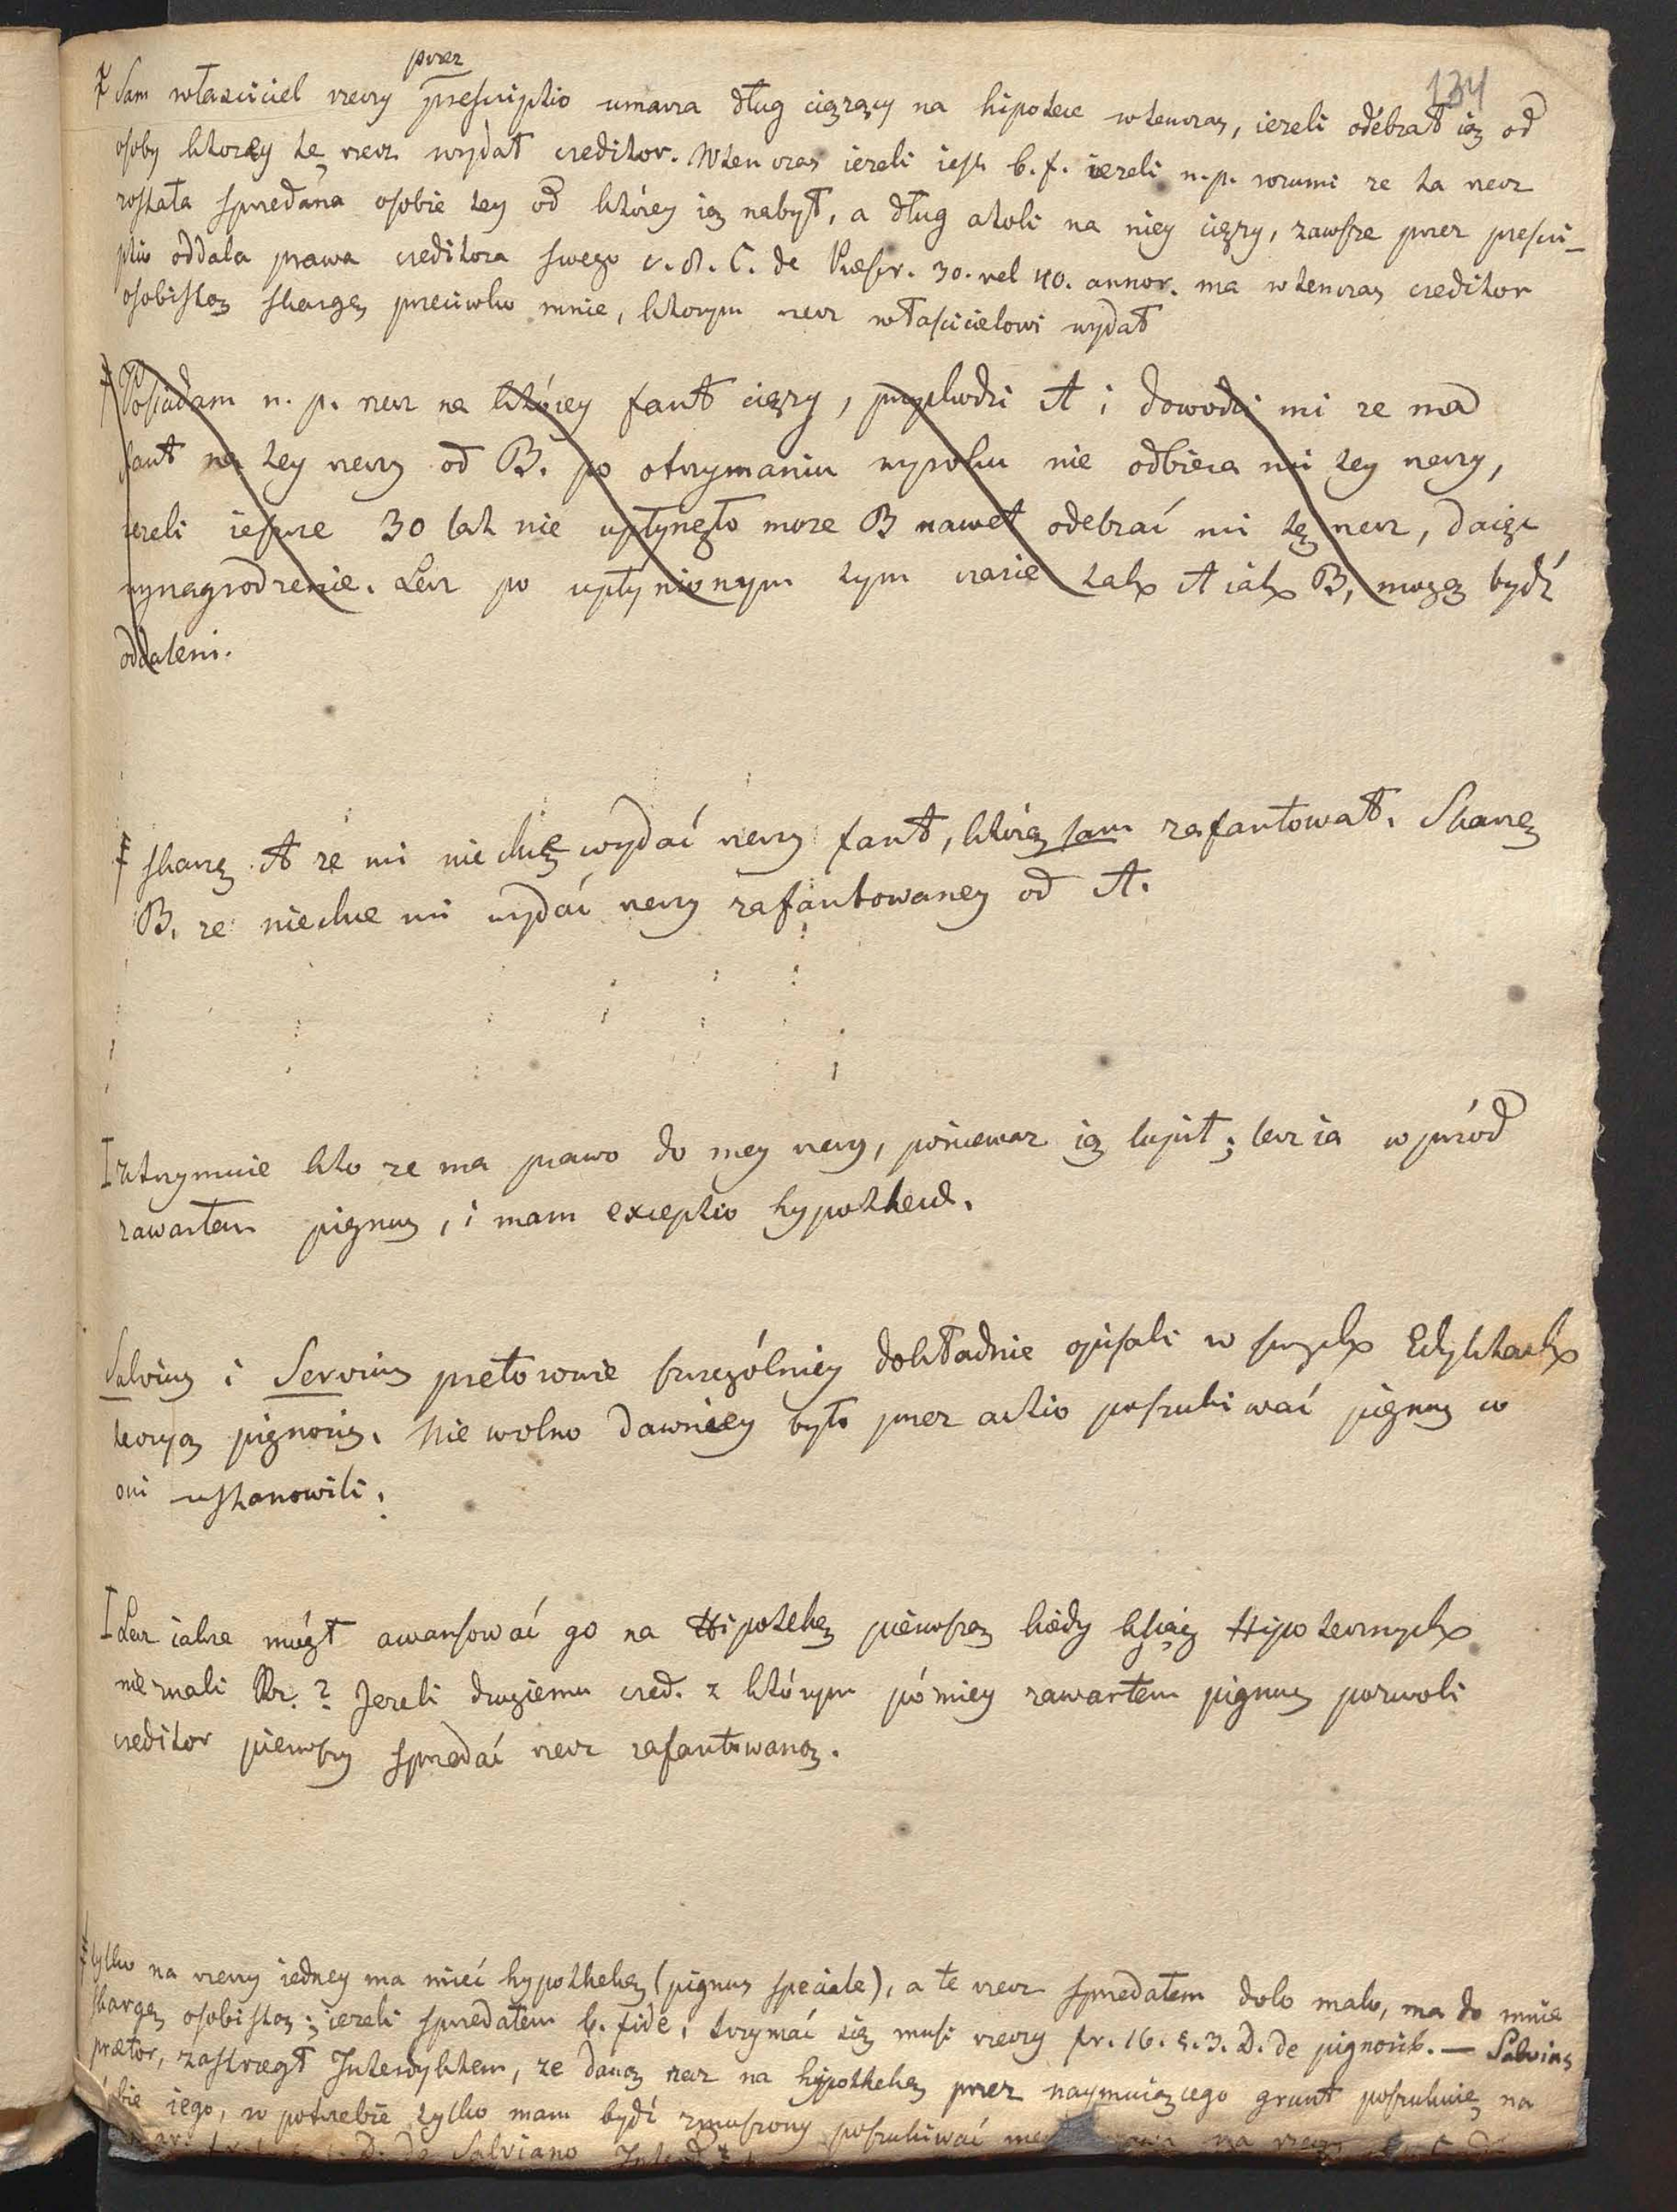 134
przez
Sam właściciel rzeczy prescriptio umarza dług ciążący na hipotece wtenczas, iezeli odebrał ią od
osoby ktorey tę rzecz wydał creditor. Wtenczas iezeli iest b. f. iezeli n. p. rozumi ze ta rzecz
została sprzedana osobie tey od którey ią nabył, a dług atoli na niey cięzy, zawsze przez prescri-
ptio oddala prawa creditora swego c. 8. C. de Præscr. 30. vel 40. annor. ma wtenczas creditor
osobistą skargę przeciwko mnie, ktorym rzecz właścicielowi wydał
Posiadam n. p. rzecz na którey fant cięzy, przychodzi A i dowodzi mi ze ma
fant na tey rzeczy od B. po otrzymaniu wyroku nie odbiera mi tey rzeczy,
iezeli ieszcze 30 lat nie upłynęło moze B nawet odebrać mi tę rzecz, daiąc
wynagrodzenie. Lecz po upłynionym tym czasie tak A iak B, mogą bydź
oddaleni.
skarzę A ze mi niechcę wydać rzeczy fant, którą sam zafantował. Skarzę
B. ze niechce mi wydać rzeczy zafantowaney od A.
utrzymuie kto ze ma prawo do mey rzeczy, poniewaz ią kupił; lecz ia wprzód
zawarłem pignus, i mam exceptio hypothecæ.
Salvius i Servius pretorowie szczególniey dokładnie opisali w swych Edyktach
teoryą pignoris. Nie wolno dawniey było przez actio poszukiwać pignus co
oni ustanowili.
Lecz iakze mógł awansować go na Hipotekę pierwszą kiedy ksiąg Hipotecznych
nie znali Rz. ? Jezeli drugiemu cred. z którym póżniey zawarłem pignus pozwoli
creditor pierwszy sprzedać rzecz zafantowaną.
tylko na rzeczy iedney ma mieć hypothekę (pignus speciale), a tę rzecz sprzedałem dolo malo, ma do mnie
skargę osobistą; iezeli sprzedałem b. fide, trzymać się musi rzeczy fr. 16. §. 3. D. de pignorib. — Salvius
prætor, zastrzegł Interdyktem, ze daną rzecz na hypothekę przez naymuiącego grunt poszukuię na
iego, w potrzebie tylko mam bydź zmuszony poszukiwać na rzeczy
D. De Salviano